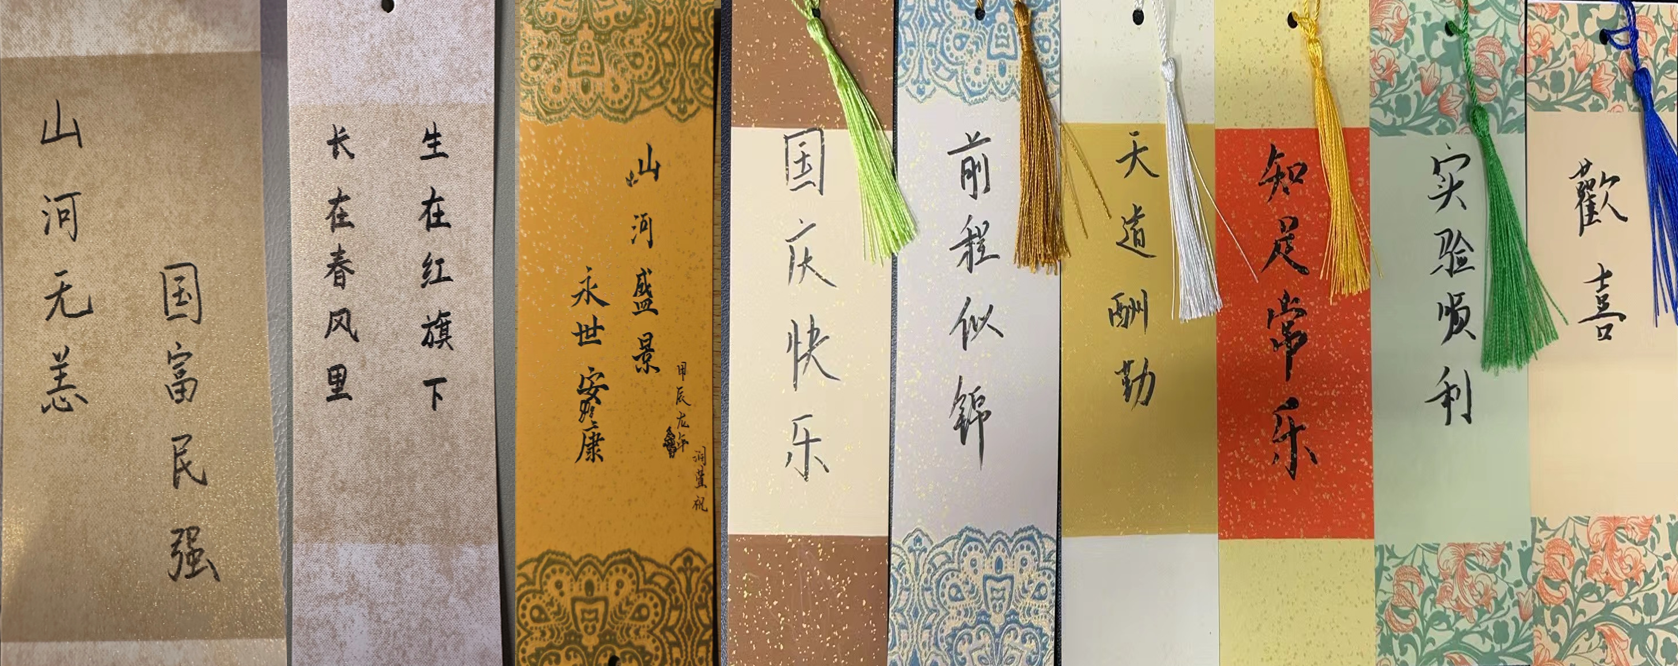 山河无恙
国富民强
生在红旗下
长在春风里
山河盛景
永世安康
甲辰龙年
润萱祝
国庆快乐
前程似锦
天道酬勤
知足常乐
实验顺利
歡喜